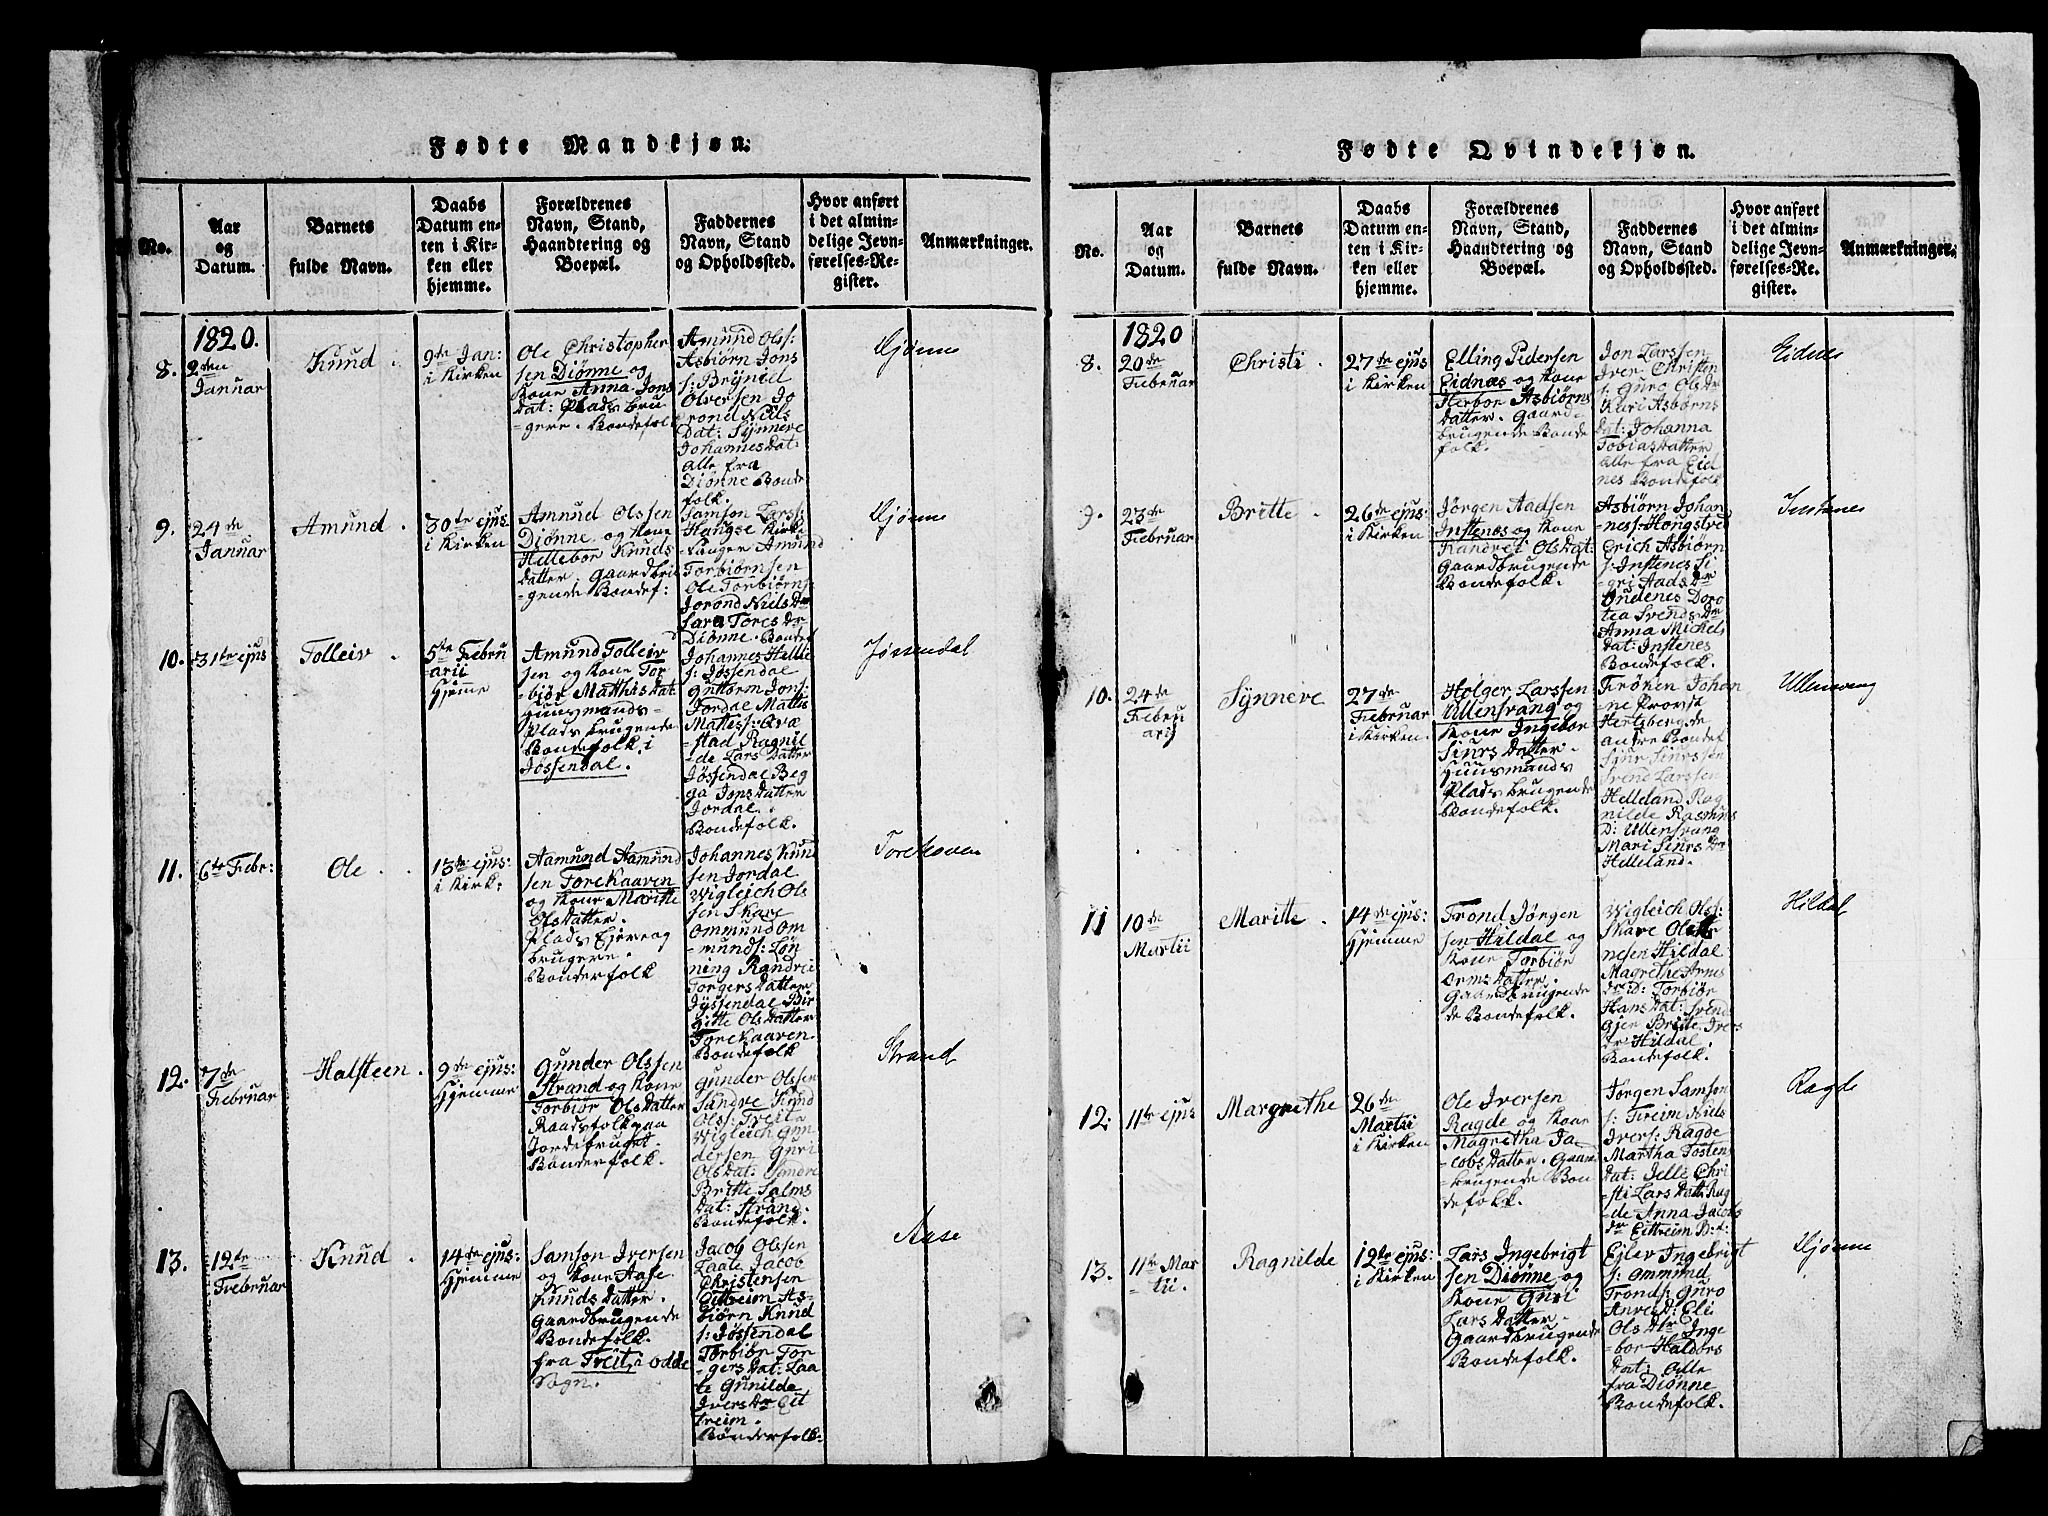 Fødte Mandkjøn.
No.
Aar
og
Datum.
Barnets
fulde Navn.
Daabs
Datum en-
ten i Kir-
ken eller
hjemme.
Forældrenes
Navn, Stand,
Haandtering og
Boepæl.
Faddernes
Navn, Stand
og Opholdssted.
Hvor anført
i det almin-
delige Jevn-
førelses-Re-
gister.
Anmærkninger.
1820.
8.
2den
Januar
Knud
9de Jan:
i Kirken
Ole Christopher
sen Diønne og
Kone Anna Jons
Dat: Plads bru
-gere. Bondefolk
Amund Ols:
Asbiørn Jons
s: Brÿnild
Olversen Jo
rond Niels
Dat: Sÿnneve
Johannes Dat:
alle fra
Diønne Bonde
folk.
Djønne
9.
24de
Januar
Amund
30te ejus:
i Kirken
Amund Olssen
Diønne og Kone
Hillebor Knuds
datter, Gaardbru
gende Bondef:
Samson Larss:
Haugse Kirk
sanger Amund
Torbiørnsen
Ole Torbiørns:
Jorond Niels Dr
Sara Tores Dr
Diønne. Bondef
Djønne
10.
31te ejus
Tolleiv
5te Febru
arii
Hjemme
Amund Tolleiv
sen og Kone Tor
-biør Matthis Dat
Huusmands-
Plads brugende
Bondefolk i
Jøssendal.
Johannes Helle
s: Jøssendal
Guttorm Jons:
Jordal Mattis
Mattiss: Qvæ
-stad Ragnil
-de Lars Datter
Jøssendal Beg
ga Jons Datter
Jordal.
Bondefolk.
Jøssendal
11.
6te Febr:
Ole
13de ejus:
i Kirk:
Aamund Aamund
sen Torekaaven
og Kone Maritte
Ols Datter.
Plads Ejere og
brugere.
Bonderfolk
Johannes Knud
sen Jordal
Wigleich Ols
sen Skare
Ommund Om
-munds: Løn
ning Randrii
Torgers Datter
Jÿssendal Bir
gitte Ols Datter
Torekaaven.
Bondefolk
12.
7de
Februar
Halsteen
9de ejus:
Hjemme
Gunder Olssen
Strand og Kone
Torbiør Ols Datter
Raadsfolk paa
Jordebruget.
Bønderfolk.
Gunder Olssen
Sandve Knud
Ols: Freite
Wigleich Gun
dersen Guri
Ols Dat: Sandve
Britte Salms
Dat: Strand.
Bondefolk.
Strand
13.
12te
Februar
Knud
14de ejus:
Hjemme
Samson Iversen
og Kone Aase
Knuds Datter.
Gaardbrugende
Bondefolk.
fra Freit, i Odde
Sogn.
Jacob Olssen
Laate Jacob
Christensen
Eitreim As-
biørn Knud
s: Jøssendal
Torbiør Tor
-gers Dat: Laa
te Gunilda
Ivers Dr Eit
treim.
Bønderfolk.
Aase
Fødte Qvindekjøn.
No.
Aar
og
Datum.
Barnets
fulde Navn.
Daabs
Datum en-
ten i Kir-
ken eller
hjemme.
Forældrenes
Navn, Stand,
Haandtering og
Boepæl.
Faddernes
Navn, Stand
og Opholdssted.
Hvor anført
i det almin-
delige Jevn-
førelses-Re-
gister.
Anmærkninger.
1820
8.
20de
Februar
Christi
27de ejus
i Kirken
Elling Pedersen
Eidnæs og Kone
Herbor Asbiørns
Datter. Gaard-
brugende Bonde
folk.
Jon Larssen
Iver Christen
s: Guro Ols Dr
Kari Asbiørns
Dat: Johanna
Tobias Datter
alle fra Eid
nes Bondefolk
9.
23de
Februar
Britte
26de ejus:
i Kirken
Jørgen Aadsen
Instenes og Kone
Randvei Ols Dat:
Gaardbrugende
Bondefolk.
Asbiørn Johan
ness: Hongstved
Erich Asbiørn
s: Instenes Si
gri Aads Dr
Dudenes Doro
tea Svends Dr
Anna Michels
Dat: Instenes
Bondefolk.
Instenes
10.
24de
Febru
arij
Sÿnneve
27de
Februar
i Kirken.
Holger Larssen
Ullensvang og
Kone Ingebor
Siurs Datter.
Huusmands
Plads brugende
Bondefolk.
Frøken Johan
-ne Provsk
Hertzberg. de
andre Bondef
Siur Siurssen
Svend Larssen
Helleland Rag
nilde Rasmus
D: Ullensvang
Mari Siurs Dr
Helleland.
Ullensvang
11
10de
Martii
Maritte
14de ejus:
Hjemme
Trond Jørgen
sen Hildal og
Kone Torbiør
Orms Datter.
Gaardbrugende
de Bondefolk.
Wigleich Ols:
Skare
nesen Hildal
Magrethe Arnes
D: Torbiør
Hans Dat: Svend
Gjen Britte Ivers
Dr Hildal.
Bondefolk.
Hildal
12.
11te ejus
Margrethe
26de
Martii
i Kirken
Ole Iversen
Ragde og Kone
Magretha Ja-
-cobs Datter. Gaard
-brugende Bon
defolk.
Jørgen Samson
s: Freim Niels
Ivers: Ragde
Martha Tostens
Dat: Jelle Chri
-sti Lars Datt: Rag
-de Anna Jacobs
Dr Eittreim B:d:
Ragde
13.
11te Mar
-tii.
Ragnilde
12te ejus:
i Kirken
Lars Ingebrigt
sen Diønne og
Kone Guri
Lars Datter.
Gaardbrugende
Bondefolk.
Ejlev Ingebrigt
s: Ommund
Tronds: Guro
Anved: Eli
Ols Dtr Inge
-bor Haldors
Dat: alle
fra Diønne
Bondefolk.
Djønne